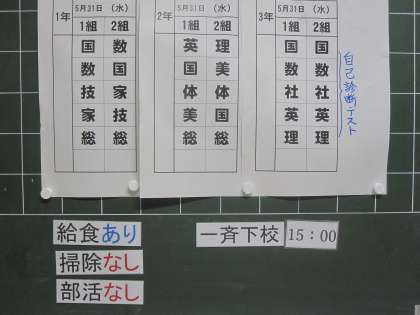 1年 5月31日 (水)
1組 2組
国 数
数 国
技 家
家 技
総 総
2年 5月31日 (水)
1組 2組
英 理
国 美
体 体
美 国
総 総
3年 5月31日 (水)
1組 2組
国 国
数 数
社 社
英 英
理 理
自己診断テスト
給食あり
掃除なし
部活なし
一斉下校 15:00